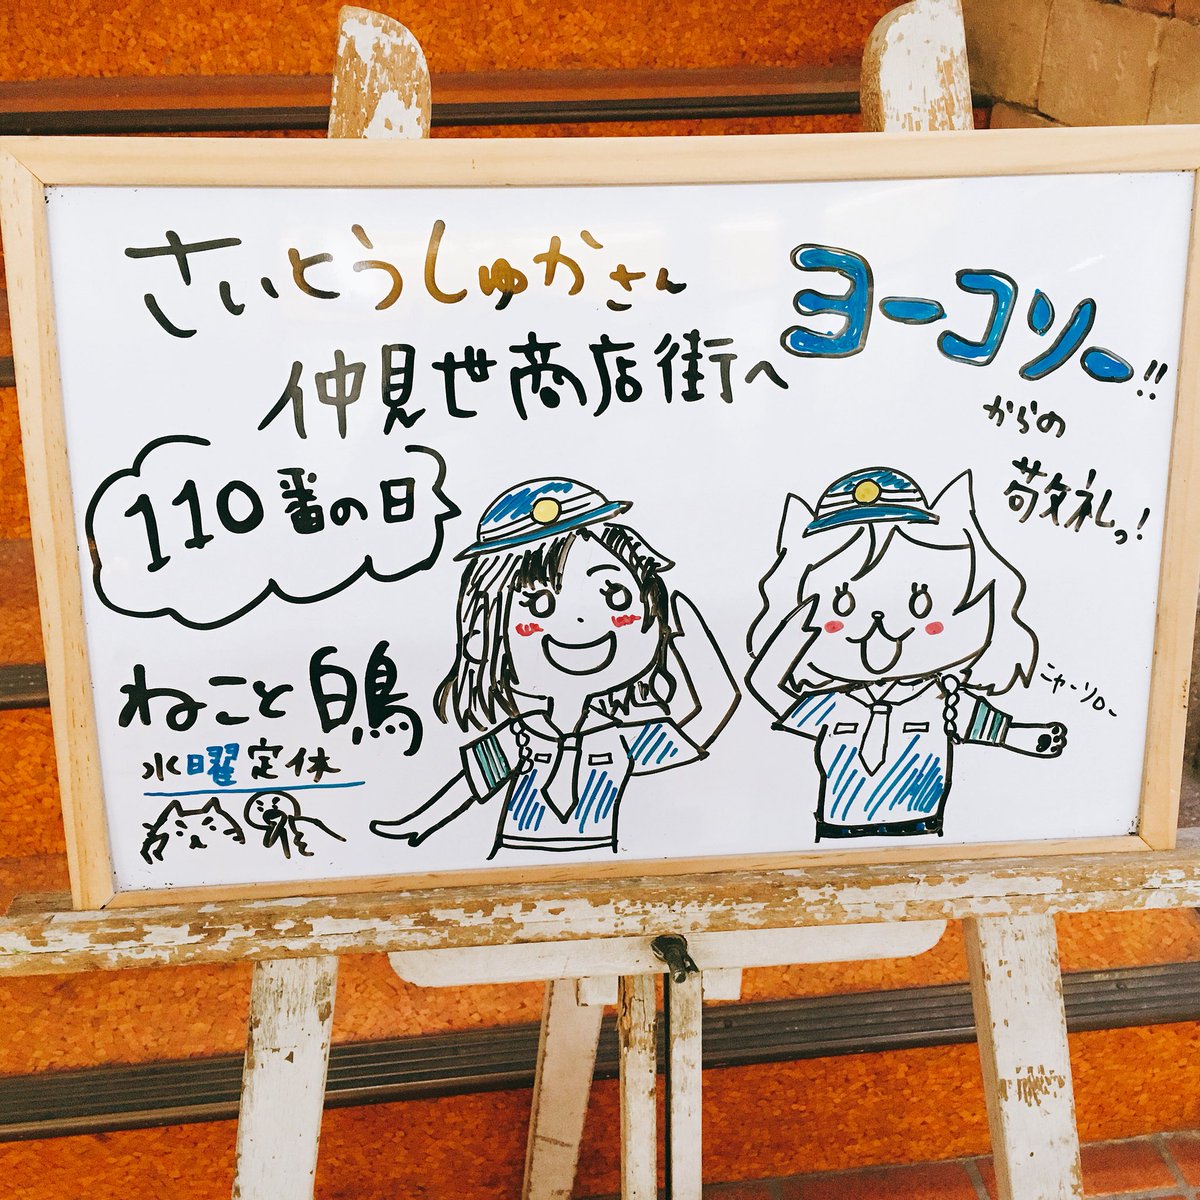 さいとうしゅかさん
仲見世商店街へ
ヨーコソー!!
からの
敬礼っ!
110番の日
ねこと白鳥
水曜定休
ニャーソロー